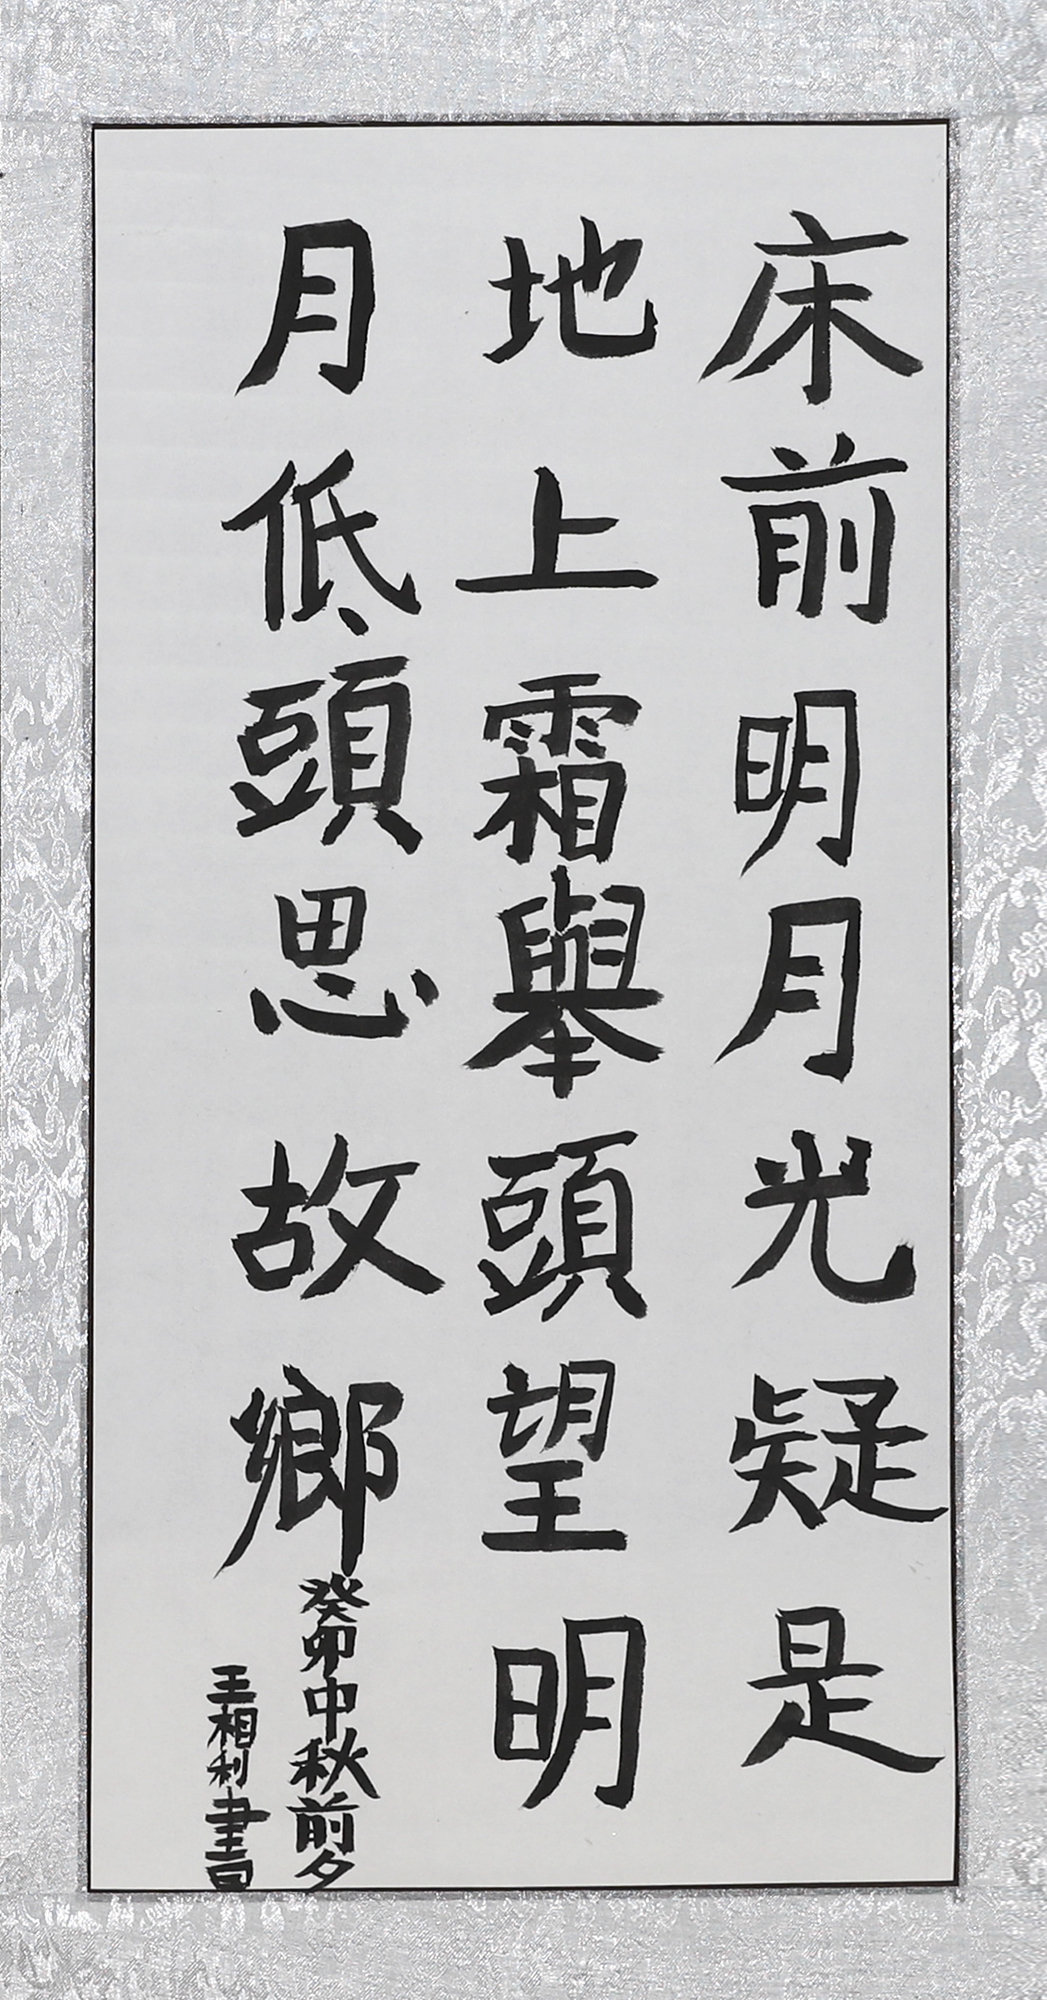 床前明月光疑是
地上霜舉頭望明
月低頭思故鄉
癸卯中秋前夕
王相利書